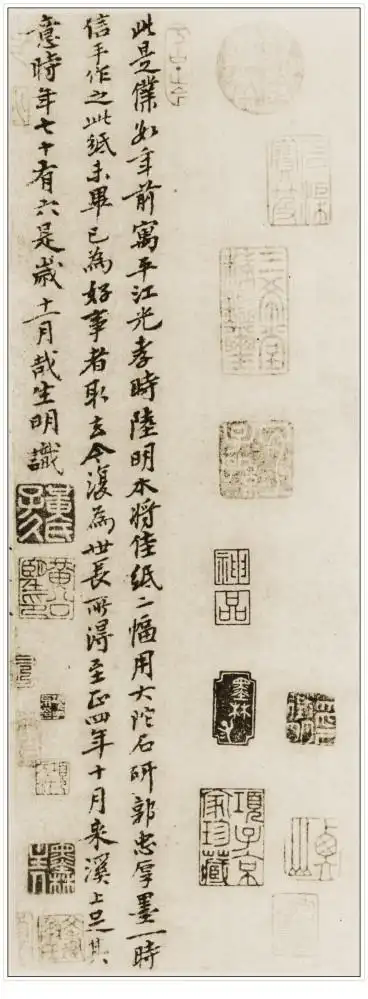 此是僕數年前寓平江光孝時陸明本將佳紙二幅用大陀石研郭忠厚墨一時
信手作之此紙未畢已為好事者取去今復為世長所得至正四年十月來溪上足其
意時年七十有六是歲十一月哉生明識
三希堂精鑑璽
神品
項子京家珍藏
黃氏子久